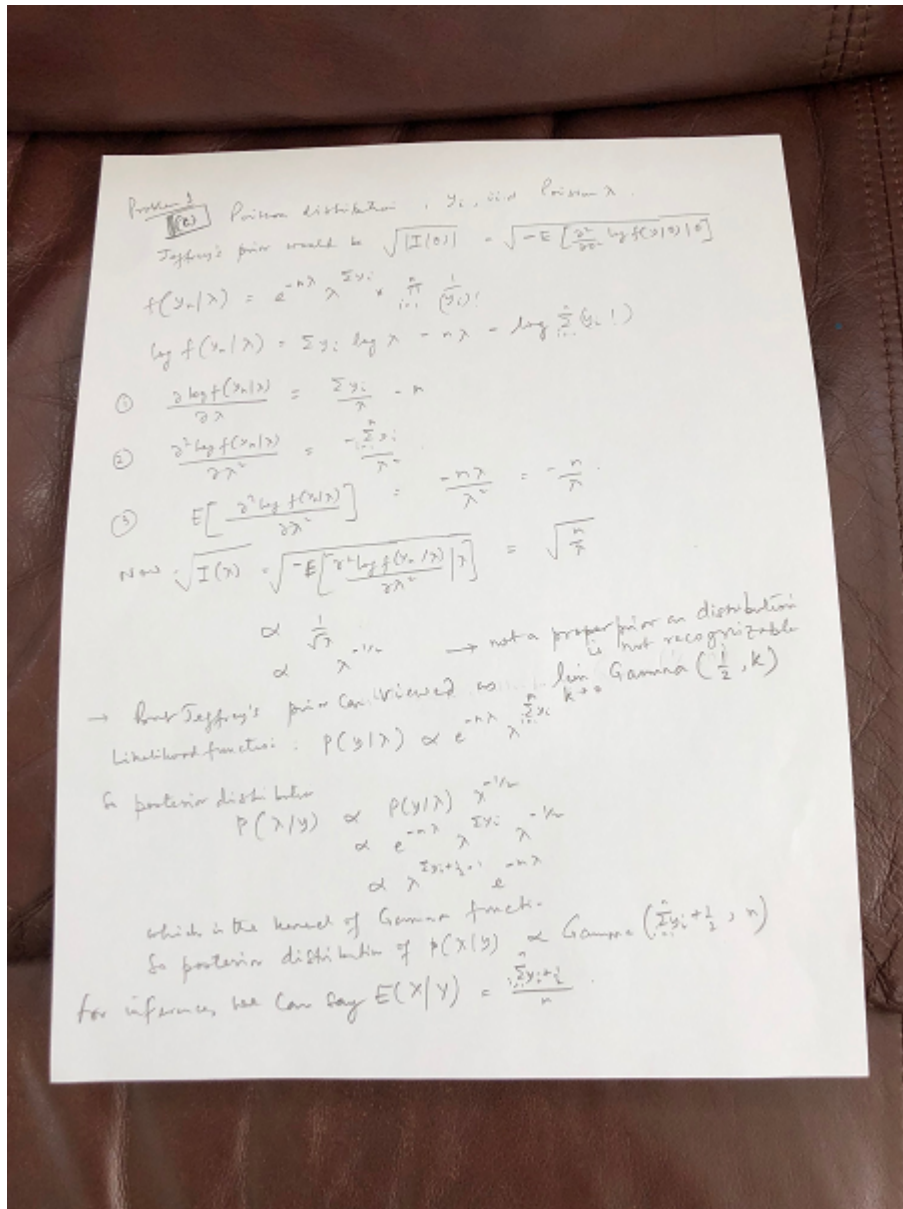 Problem 1
(a) Poisson distribution, yᵢ, iid Poisson λ.
Jeffrey's prior would be √|I(θ)| = √-E[∂²/∂θ² log f(y|θ)|θ]
f(yₙ|λ) = e^(-nλ) λ^(Σyᵢ) × ∏_(i=1)^n 1/(yᵢ)!
log f(yₙ|λ) = Σyᵢ log λ - nλ - log Σ_(i=1)^n (yᵢ!)
① ∂log f(yₙ|λ)/∂λ = Σyᵢ/λ - n
② ∂²log f(yₙ|λ)/∂λ² = -Σ_(i=1)^n yᵢ/λ².
③ E[∂²log f(yₙ|λ)/∂λ²] = -nλ/λ² = -n/λ.
Now √I(λ) = √-E[∂²log f(yₙ|λ)/∂λ² |λ] = √(n/λ)
∝ 1/√λ
∝ λ^(-1/2) → not a proper prior as distribution is not recognizable
→ But Jeffrey's prior can viewed as lim_(k→0) Gamma(1/2, k)
Likelihood function: P(y|λ) ∝ e^(-nλ) λ^(Σ_(i=1)^n yᵢ)
So posterior distribution
P(λ|y) ∝ P(y|λ) λ^(-1/2)
∝ e^(-nλ) λ^(Σyᵢ) λ^(-1/2)
∝ λ^(Σyᵢ+1/2-1) e^(-nλ)
which is the kernel of Gamma function
So posterior distribution of p(λ|y) ∝ Gamma(Σ_(i=1)^n yᵢ+1/2, n)
For inferences, we can say E(λ|y) = (Σ_(i=1)^n yᵢ+1/2)/n.